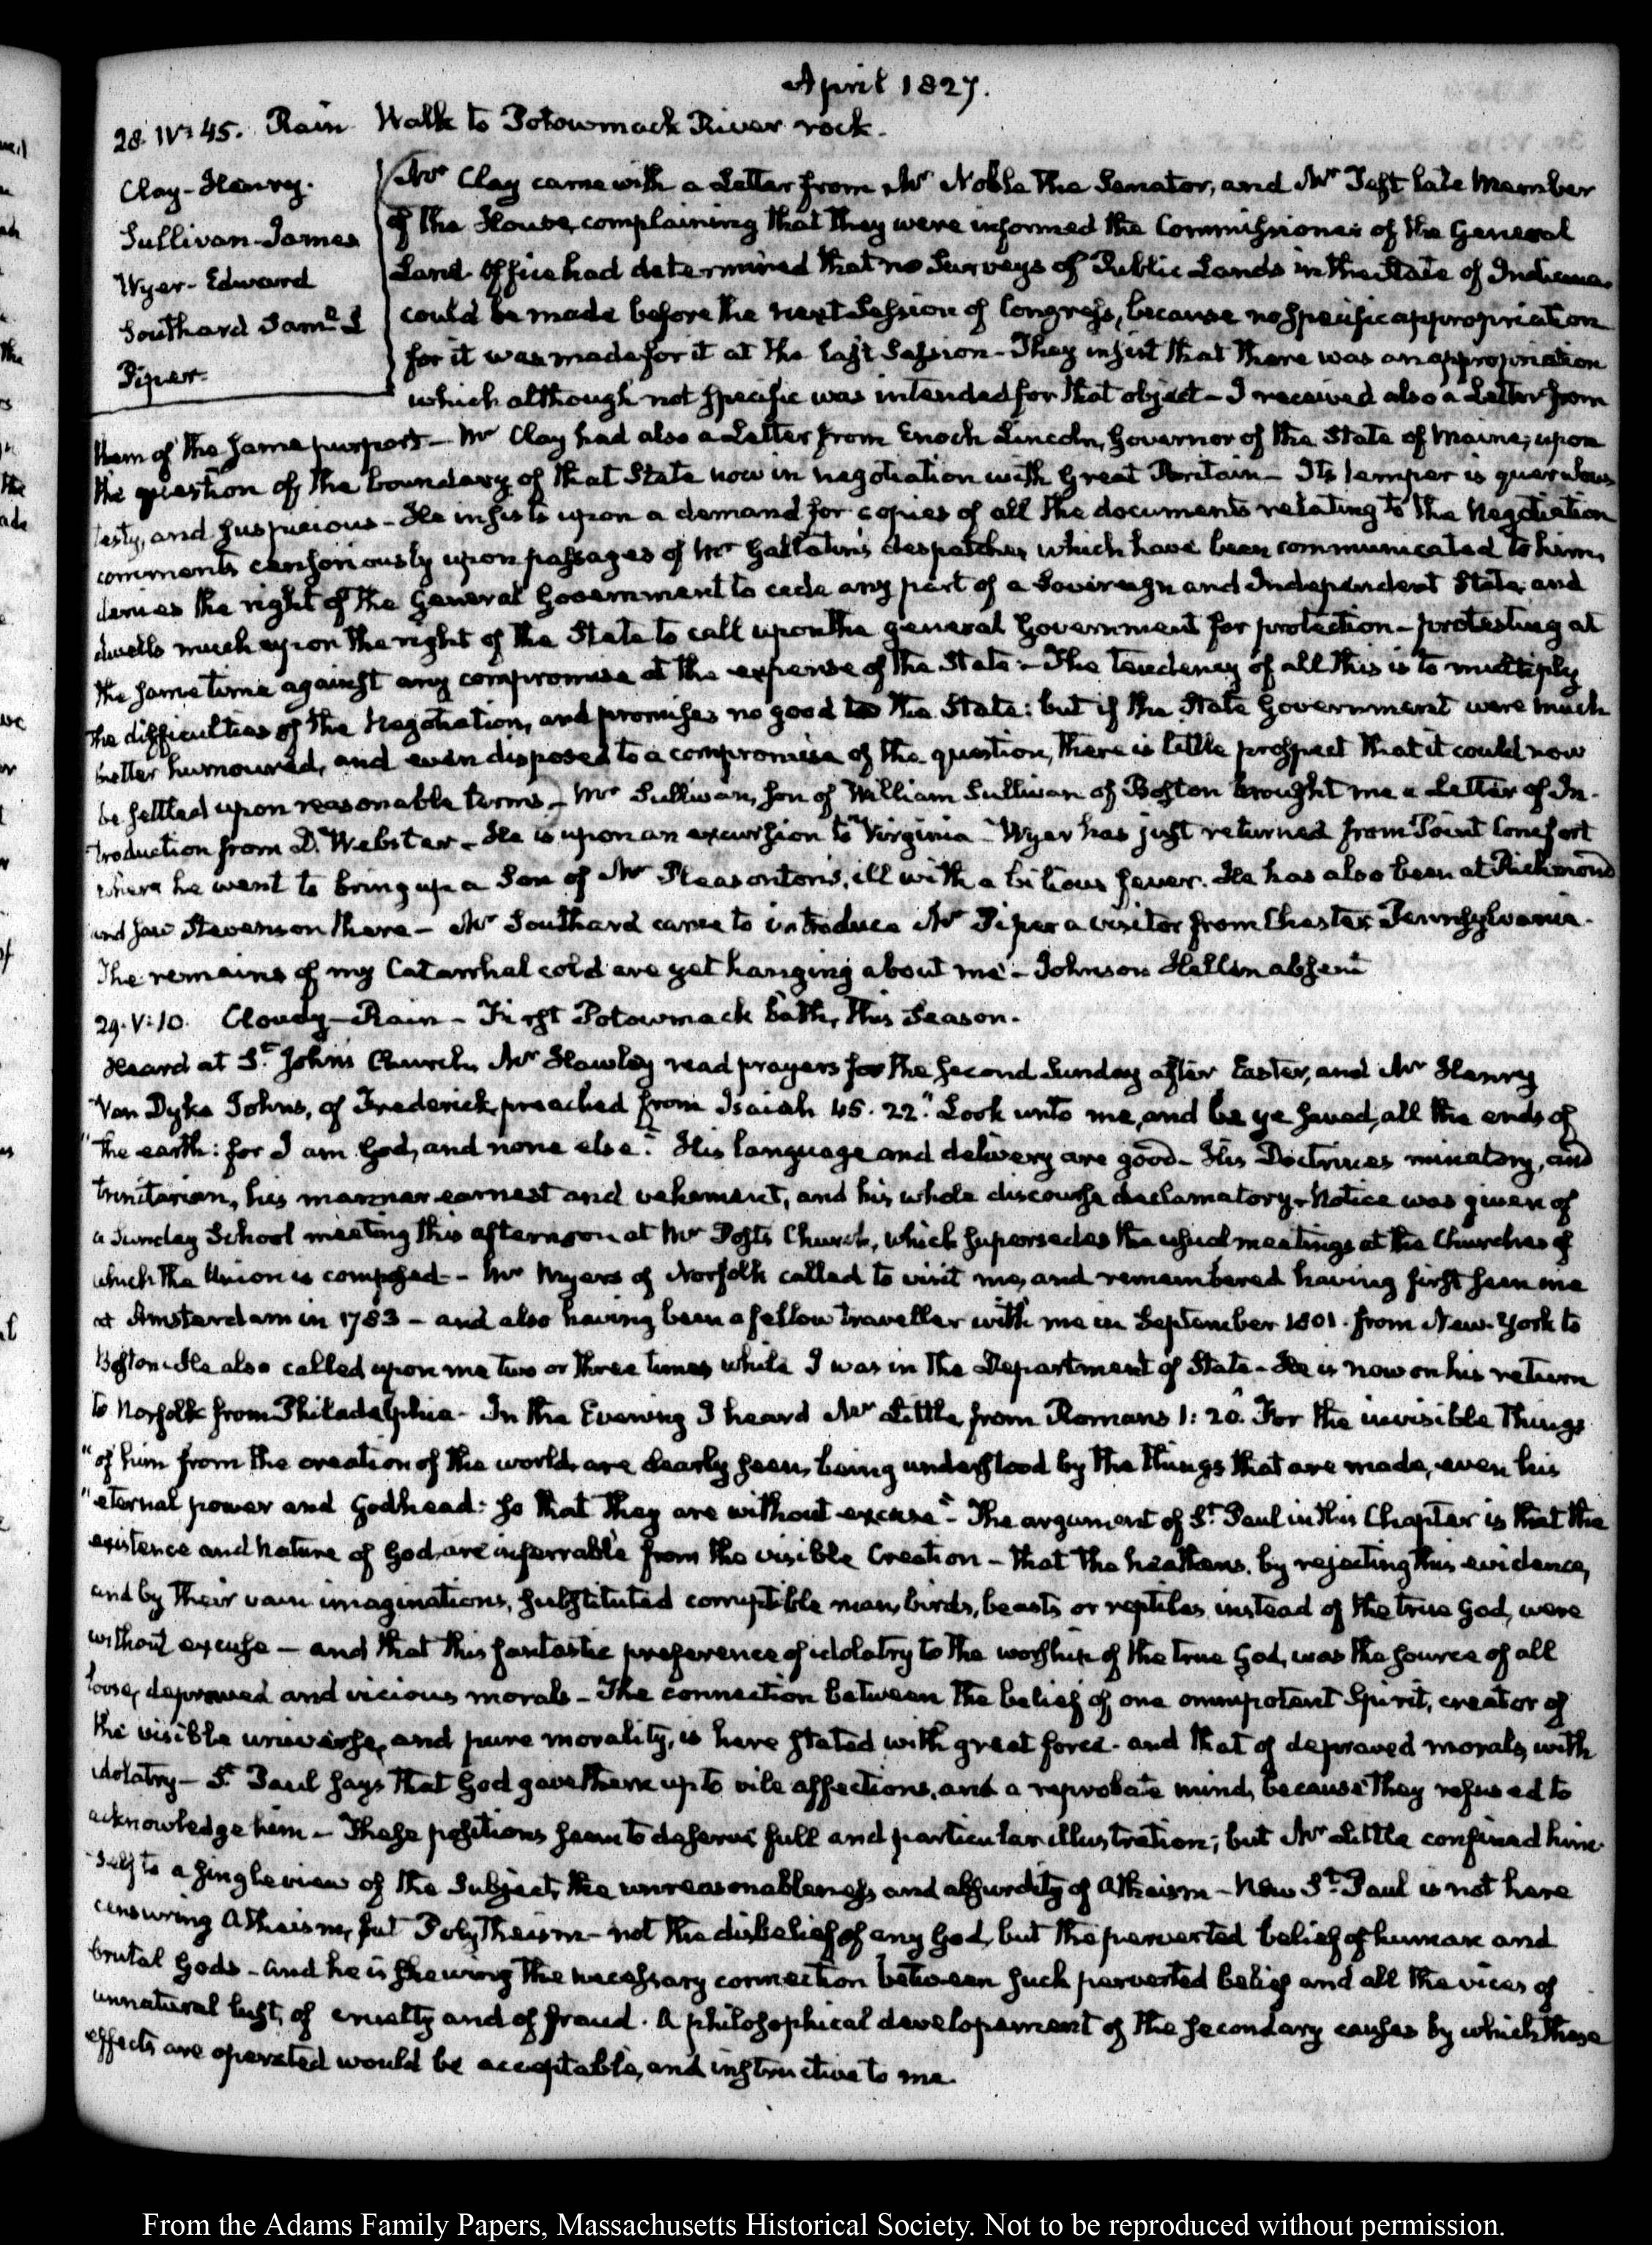 April 1827.
28. IV:45. Rain Walk to Potowmack River rock.
Clay-Henry.
Sullivan-James
Wyer-Edward
Southard Saml. L
Piper.
Mr Clay came with a Letter from Mr Noble the Senator, and Mr Test late Member
of the House, complaining that they were informed the Commissioner of the General
Land Office had determined that no Surveys of Public Lands in the State of Indiana
could be made before the next Session of Congress, because no specific appropriation
for it was made for it at the last Session - They insist that there was an appropriation
which although not specific was intended for that object - I received also a Letter from
them of the same purport - Mr Clay had also a Letter from Enoch Lincoln, Governor of the State of Maine, upon
the question of the boundary of that State now in negotiation with Great Britain - Its temper is querulous
testy, and suspicious - He insists upon a demand for copies of all the documents relating to the Negotiation
comments censoriously upon passages of Mr Gallatin's despatches which have been communicated to him,
denies the right of the General Government to cede any part of a Sovereign and Independent State, and
dwells much upon the right of the State to call upon the general Government for protection - protesting at
the same time against any compromise at the expense of the State - The tendency of all this is to multiply
the difficulties of the Negotiation, and promises no good to the State: but if the State Government were much
better humoured, and even disposed to a compromise of the question, there is little prospect that it could now
be settled upon reasonable terms - Mr Sullivan, son of William Sullivan of Boston brought me a Letter of In-
troduction from D. Webster - He is upon an excursion to Virginia - Wyer has just returned from Point Comfort
where he went to bring up a Son of Mr Pleasonton's, ill with a bilious fever. He has also been at Richmond
and saw Stevenson there - Mr Southard came to introduce Mr Piper a visitor from Chester Pennsylvania.
The remains of my Catarrhal cold are yet hanging about me - Johnson Hellen absent
29. V:10. Cloudy - Rain - First Potowmack bath, this Season.
Heard at St. John's Church, Mr Hawley read prayers for the second Sunday after Easter, and Mr Henry
Van Dyke Johns, of Frederick, preached from Isaiah 45. 22. "Look unto me, and be ye saved, all the ends of
"the earth: for I am God, and none else." His language and delivery are good - His Doctrines minatory, and
trinitarian, his manner earnest and vehement, and his whole discourse declamatory - Notice was given of
a Sunday School meeting this afternoon at Mr Post's Church, which supersedes the usual meetings at the Churches of
which the Union is composed - Mr Myers of Norfolk called to visit me, and remembered having first seen me
at Amsterdam in 1783 - and also having been a fellow traveller with me in September 1801. from New-York to
Boston. He also called upon me two or three times while I was in the Department of State - He is now on his return
to Norfolk from Philadelphia - In the Evening I heard Mr Little, from Romans 1: 20. "For the invisible things
"of him from the creation of the world, are clearly seen, being understood by the things that are made, even his
"eternal power and Godhead: so that they are without excuse" - The argument of St. Paul in this Chapter is that the
existence and Nature of God, are inferrable from the visible Creation - that the heathens, by rejecting this evidence,
and by their vain imaginations, substituted corruptible man, birds, beasts or reptiles, instead of the true God, were
without excuse - and that this fantastic preference of idolatry to the worship of the true God, was the source of all
loose, depraved and vicious morals - The connection between the belief of one omnipotent Spirit, creator of
the visible universe, and pure morality, is here stated with great force - and that of depraved morals, with
idolatry - St. Paul says that God gave them up to vile affections, and a reprobate mind, because they refused to
acknowledge him - These positions seem to deserve full and particular illustration; but Mr Little confined him-
self to a single view of the Subject, the unreasonableness and absurdity of Atheism - Now St. Paul is not here
censuring Atheism, but Polytheism - not the disbelief of any God, but the perverted belief of human and
brutal Gods - and he is shewing the necessary connection between such perverted belief and all the vices of
unnatural lust, of cruelty and of fraud. A philosophical developement of the secondary causes by which these
effects are operated would be acceptable, and instructive to me.
From the Adams Family Papers, Massachusetts Historical Society. Not to be reproduced without permission.